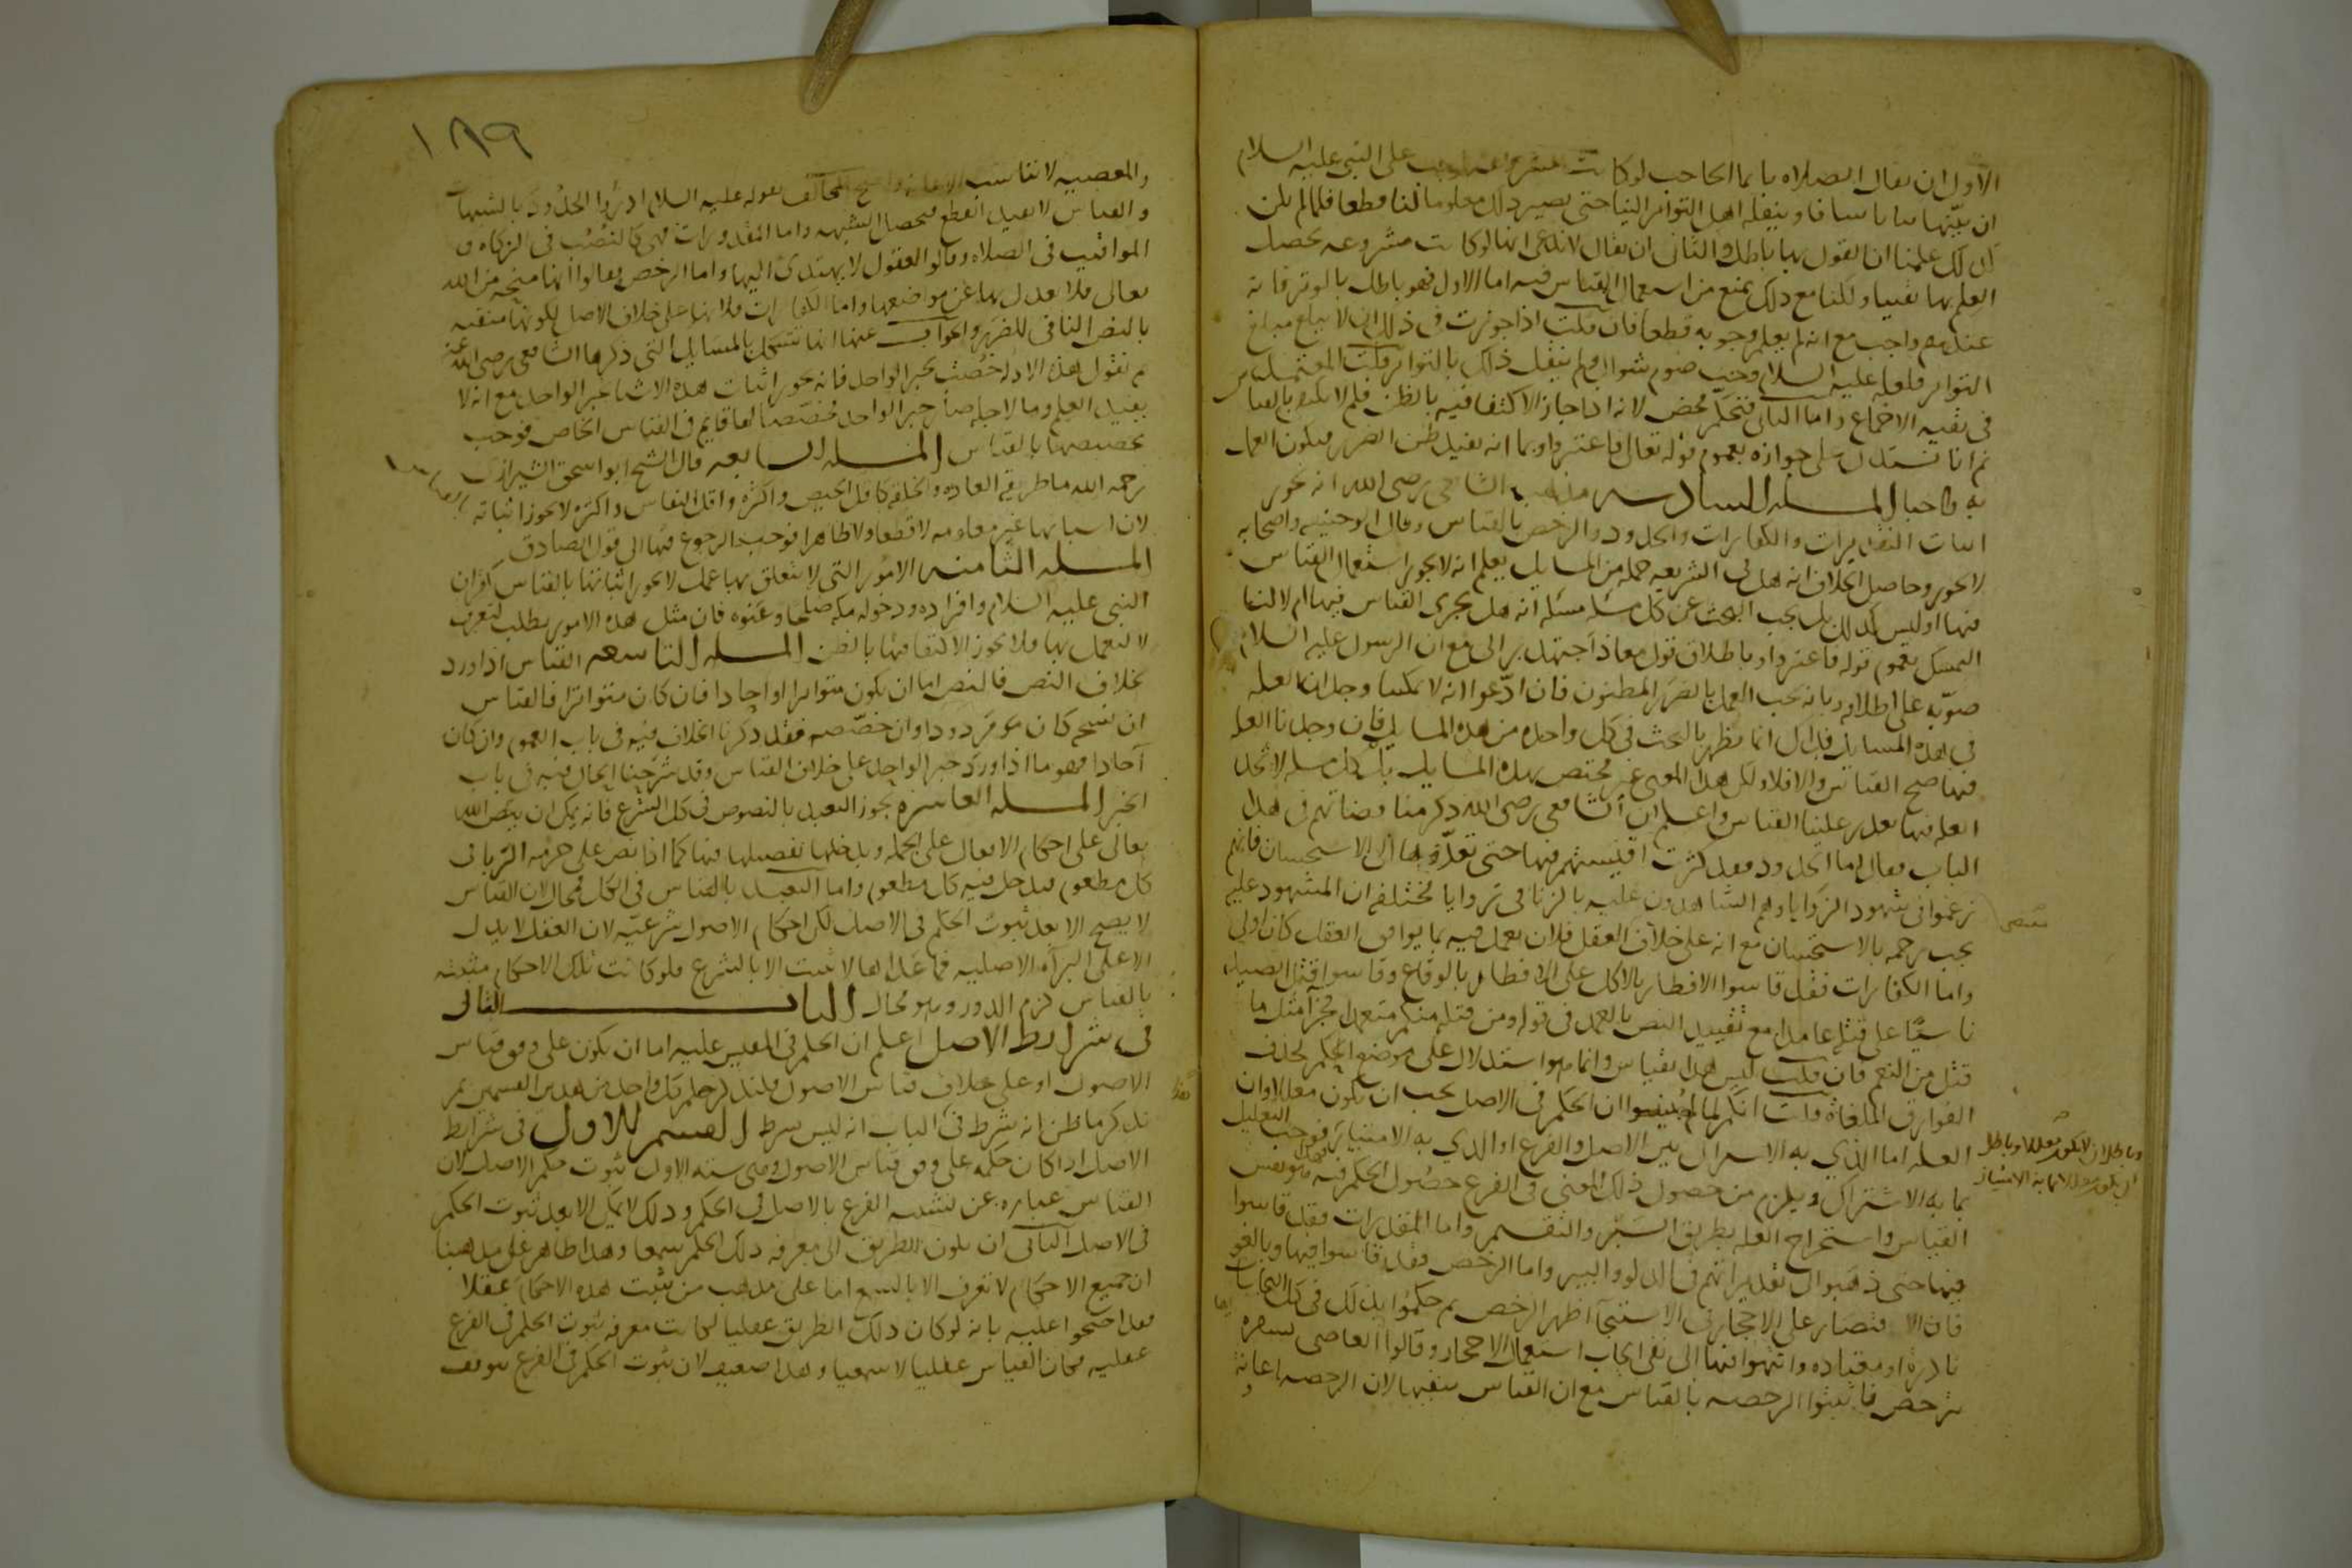 الأول ان يقال الصلاه بايما الحاجب لو كانت مشروعه لوجب على النبي عليه السلام
ان يبينها بيانا شافيا وينقله اهل التواتر الينا حتى يصير ذلك معلوما لنا قطعا فلما لم يكن
كذلك علمنا ان القول بها باطل والثاني ان يقال لا ندعي انها لو كانت مشروعه يحصل
العلم بها يقينيا ولكنا مع ذلك نمنع من استعمال القياس فيه اما الاول فهو باطل بالوتر فانه
عندهم واجب مع انه لم يعلم وجوبه قطعا فان قلت اذا جوزت في ذلك ان لا يبلغ مبلغ
التواتر فلعله عليه السلام وجب صوم شوال ولم ينقل ذلك بالتواتر قلت المعتمد
في نفيه الاجماع واما الثاني فتحكم محض لانه اذا جاز الاكتفا فيه بالظن فلم لا يكتفى بالقياس
ثم انا نستدل على جوازه بعموم قوله تعالى فاعتبروا وبما انه يفيد ظن الضرر فيكون العمل
به واجبا المسله السادسه مذهب الشافعي رضى الله انه يجوز
اثبات التقديرات والكفارات والحدود والرخص بالقياس وقال ابو حنيفه واصحابه
لا يجوز وحاصل الخلاف انه هل في الشريعه جمله من المسايل يعلم انه لا يجوز استعمال القياس
فيها او ليس كذلك بل يجب البحث عن كل مسله مسله انه هل يجري القياس فيها ام لا لنا
التمسك بعموم قوله فاعتبروا وباطلاق قول معاذ اجتهد برايي مع ان الرسول عليه السلام
صوبه على اطلاقه وبانه يجب العمل بالضرر المظنون فان ادعوا انه لا يمكننا وجدان العله
في هذه المسايل فذاك انما يظهر بالبحث في كل واحده من هذه المسايل فان وجدنا العله
فيها صح القياس والا فلا ولكن هذا المعنى غير مختص بهذه المسايل بل كل مسله لا نجد
العله فيها تعذر علينا القياس واعلم ان الشافعي رضى الله ذكر مناقضاتهم في هذا
الباب فقال اما الحدود فقد كثرت اقيستهم فيها حتى تعدوها الى الاستحسان فانهم
زعموا في شهود الزوايا وهم الشاهدون عليه بالزنا في زوايا مختلفه ان المشهود عليه
يجب رجمه بالاستحسان مع انه على خلاف العقل فلان نعمل فيه بما يوافق العقل كان اولى
واما الكفارات فقد قاسوا الافطار بالاكل على الافطار بالوقاع وقاسوا قتل الصيد
ناسيا على قتله عامدا مع تقييد النص بالعمد في قوله ومن قتله منكم متعمدا فجزآ مثل ما
قتل من النعم فان قلت ليس هذا بقياس وانما هو استدلال على موضع الحكم بحذف
الفوارق الملغاة قلت
العله اما الذي به الاشتراك بين الاصل والفرع او الذي به الامتياز
بما به الاشتراك ويلزم من حصول ذلك المعنى في الفرع حصول الحكم فيه
القياس واستخراج العله بطريق السبر والتقسيم واما المقدرات فقد قاسوا
فيها حتى ذهبوا الى تقديراتهم في الدلو والبير واما الرخص فقد قاسوا فيها وبالغوا
فان الاقتصار على الاحجار في الاستنجآ اظهر الرخص ثم حكموا بذلك في كل النجاسات
نادرة او معتاده وانتهوا فيها الى نفى ايجاب استعمال الاحجار وقالوا العاصى بسفره
يترخص فاثبتوا الرخصه بالقياس مع ان القياس ينفيها لان الرخصه اعانه
١٨٩
والمعصيه لا تناسب الاعانه واحتج المخالف بقوله عليه السلام ادرؤا الحدود بالشبهات
والقياس لا يفيد القطع فتحصل الشبهه واما المقدورات فهى كالنصب في الزكاه و
المواقيت في الصلاه وقالوا العقول لا يهتدى اليها واما الرخص فقالوا انها منحه من الله
تعالى فلا نعدل بها عن مواضعها واما الكفارات فلانها على خلاف الاصل لكونها منفيه
بالنص النافى للضرر والجواب عنها انها تشكل بالمسايل التى ذكرها الشافعي رضى الله عنه
ثم نقول هذه الادله خصت بخبر الواحد فانه يجوز اثبات هذه الاشيا بخبر الواحد مع انه لا
يفيد العلم وما لاجله صار خبر الواحد مخصصا لها قايم في القياس الخاص فوجب
تخصيصها بالقياس المسله السابعه قال الشيخ ابو اسحق الشيرازى
رحمه الله ما طريقه العاده والخلقه كاقل الحيض واكثره واقل النفاس واكثره لا يجوز اثباته
لان اسبابها غير معلومه لا قطعا ولا ظاهرا فوجب الرجوع فيها الى قول الصادق
المسله الثامنه الامور التى لا يتعلق بها عمل لا يجوز اثباتها بالقياس كقران
النبى عليه السلام وافراده ودخوله مكه صلحا وعنوه فان مثل هذه الامور يطلب لتعرف
لا لتعمل بها فلا يجوز الاكتفا فيها بالظن المسله التاسعه القياس اذا ورد
بخلاف النص فالنص اما ان يكون متواترا او احادا فان كان متواترا فالقياس
ان نسخه كان مردودا وان خصصه فقد ذكرنا الخلاف فيه في باب العموم وان كان
آحادا فهو ما اذا ورد خبر الواحد على خلاف القياس وقد شرحنا الحال فيه في باب
الخبر المسله العاشره يجوز التعبد بالنصوص في كل الشرع فانه يمكن ان ينص الله
تعالى على احكام الافعال على الجمله ويدخلها تفصيلها فيها كما اذا نص على حرمه الربا في
كل مطعوم فيدخل فيه كل مطعوم واما التعبد بالقياس في الكل فمحال لان القياس
لا يصح الا بعد ثبوت الحكم في الاصل لكن احكام الاصول شرعيه لان العقل لا يدل
الا على البرآه الاصليه فما عداها لا يثبت الا بالشرع فلو كانت تلك الاحكام مثبته
بالقياس لزم الدور وهو محال الباب الثانى
في شرايط الاصل اعلم ان الحكم في المقيس عليه اما ان يكون على وفق قياس
الاصول او على خلاف قياس الاصول فلنذكر حكم كل واحد من هذين القسمين ثم
نذكر ما ظن انه شرط في الباب انه ليس بشرط القسم الاول في شرايط
الاصل اذا كان حكمه على وفق قياس الاصول وهى سته الاول ثبوت حكم الاصل لان
القياس عباره عن تشبيه الفرع بالاصل في الحكم وذلك لا يمكن الا بعد ثبوت الحكم
في الاصل الثانى ان يكون الطريق الى معرفه ذلك الحكم سمعا وهذا ظاهر على مذهبنا
ان جميع الاحكام لا تعرف الا بالسمع اما على مذهب من يثبت هذه الاحكام عقلا
فقد احتجوا عليه بانه لو كان ذلك الطريق عقليا لكانت معرفه ثبوت الحكم في الفرع
عقليه فكان القياس عقليا لا سمعيا وهذا ضعيف لان ثبوت الحكم في الفرع يتوقف